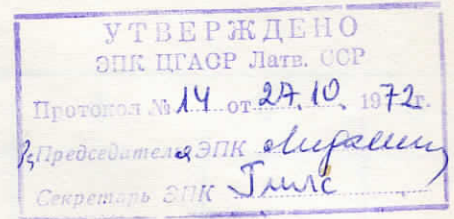 УТВЕРЖДЕНО
ЭПК ЦГАОР Латв. ССР
Протокол № 14 от 27.10. 1972г.
Председателя ЭПК
Секретарь ЭПК